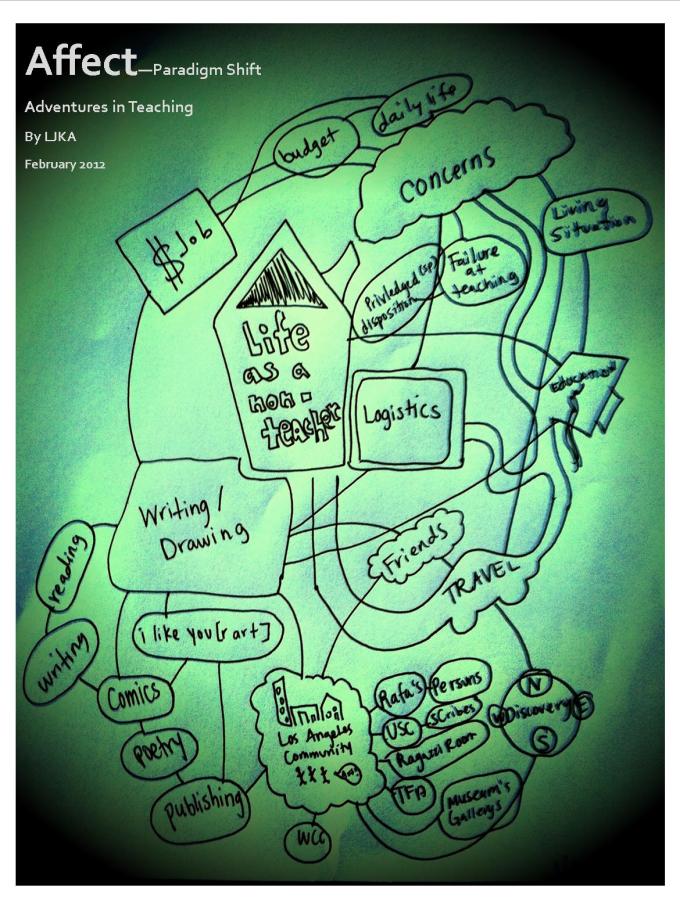 Affect—Paradigm Shift
Adventures in Teaching
By LJKA
February 2012
daily life
budget
Concerns
$ Job
Living
Situation
Priviledged (sp)
disposition
Failure
at
teaching
Life
as a
non-
teacher
Education
Logistics
Writing/
Drawing
Friends
TRAVEL
reading
i like you[r art]
writing
Comics
poetry
publishing
Los Angeles
Community
Rafa's
Persuns
USC
sCribes
Ragazzi Room
TFA
Museum's
Gallerys
N
W Discovery E
S
WCC